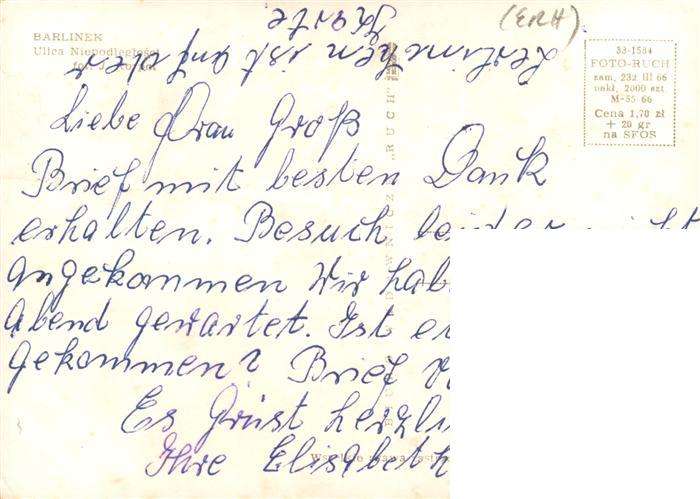 (ERH)
BARLINEK
Ulica Niepodległości
fot. J.
33-1584
FOTO-RUCH
zam. 232 III 66
nakł. 2000 szt
M-55 66
Cena 1,70 zł
+ 20 gr
na SFOS
"RUCH"
ist auf der
Karte
Liebe Frau Groß
Brief mit besten Dank
erhalten. Besuch leider nicht
angekommen Wir hab
Abend gewartet. Ist er
gekommen? Brief
Es Grüst herzli
Ihre Elisabeth